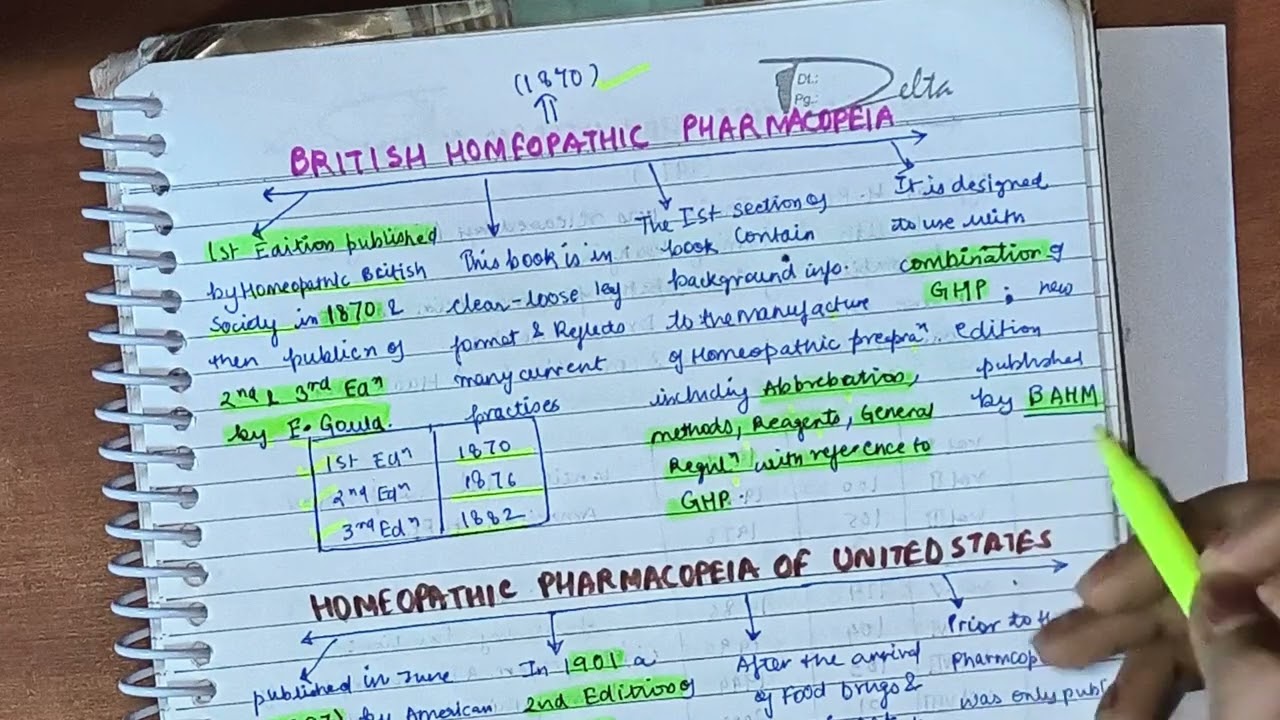 (1870)
Dt.:
Pg.:
Delta
BRITISH HOMEOPATHIC PHARMACOPEIA
1st Edition published
by Homeopathic British
Society in 1870 &
then publicn of
2nd & 3rd Edn
by E. Gould.
This book is in
clear-loose leg
format & Reflects
many current
practises
The Ist section of
book Contain
background info.
to the manufacture
of Homeopathic preprn.
including Abbrebation,
methods, Reagents, General
Reguln with reference to
GHP.
It is designed
to use with
combination of
GHP ; new
edition
published
by BAHM
1st Edn 1870
2nd Edn 1876
3rd Edn 1882
HOMEOPATHIC PHARMACOPEIA OF UNITED STATES
published in June
by American
In 1901 a
2nd Edition of
After the arrival
of Food Drugs &
Prior to
Pharmcop
was only publ